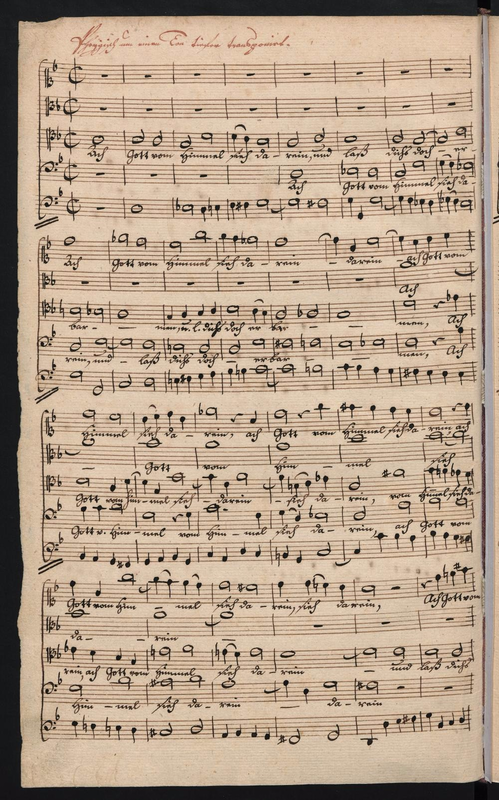 Phrygisch um einen Ton tiefer transponiert.
Ach Gott vom Himmel sieh da - rein, und laß dichs doch er-
Ach Gott vom Himmel sieh da
Ach Gott vom Himmel sieh da - rein - darein - Ach Gott vom
Ach
bar - - men, u. l. dichs doch er bar - - men, Ach
rein, und - laß dichs doch er bar - - men, Ach
Himmel sieh da - rein, ach Gott vom Himmel sieh da - rein ach
- Gott vom Him - mel sieh
Gott vom Him - mel sieh - darein - sieh da - rein, vom Himel sieh da -
Gott v. Him - mel vom Him - mel sieh da - rein, ach Gott vom
Gott vom Him - mel sieh da - rein, sieh darein, Ach Gott vom
da - rein -
rein ach Gott vom Himmel sieh da - rein und laß dichs
Him - mel sieh da - rein - darein